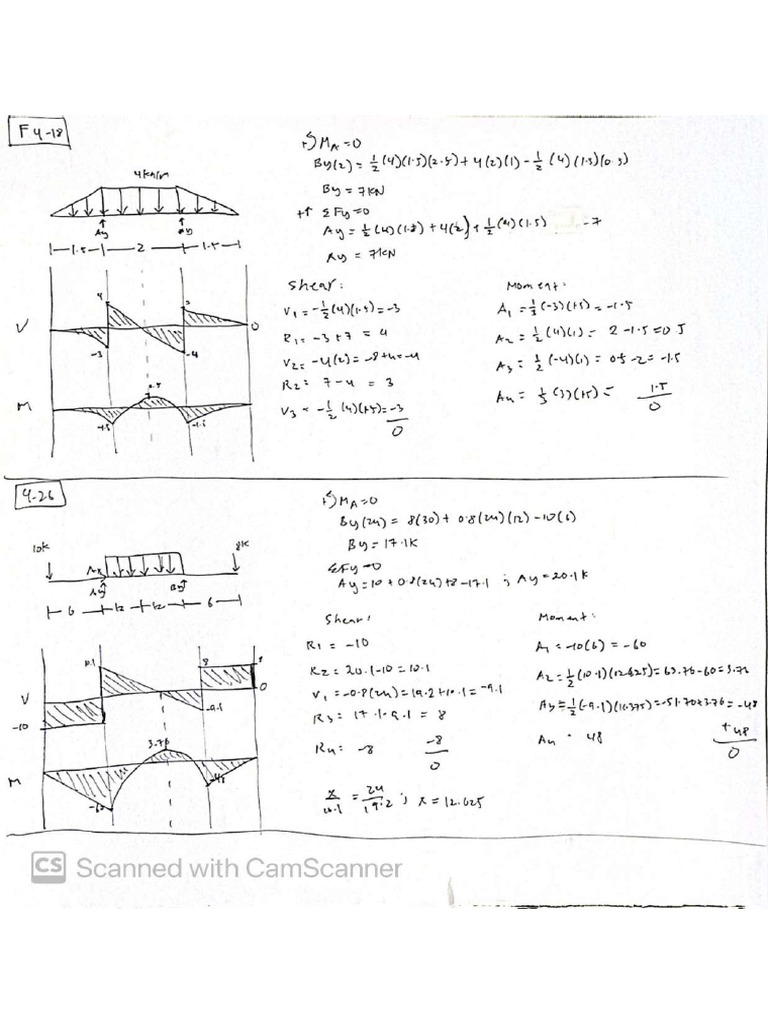 F4-18
4kN/m
Ay
By
1.5
2
1.5
V
4
3
0
-3
-4
M
0.5
-1.5
-1.5
+↺MA=0
By(2) = ½(4)(1.5)(2.5) + 4(2)(1) - ½(4)(1.5)(0.5)
By = 7kN
+↑ ΣFy=0
Ay = ½(4)(1.5) + 4(2) + ½(4)(1.5) -7
Ay = 7kN
Shear:
V1 = -½(4)(1.5) = -3
R1 = -3+7 = 4
V2 = -4(2) = -8+4 = -4
R2 = 7-4 = 3
V3 = -½(4)(1.5) = -3
0
Moment:
A1 = ⅓(-3)(1.5) = -1.5
A2 = ½(4)(1) = 2 -1.5 = 0.5
A3 = ½(-4)(1) = 0.5 -2 = -1.5
A4 = ⅓(3)(1.5) = 1.5
0
4-26
10k
8k
Ax
Ay
By
6
12
12
6
V
10.1
8
0
-10
-9.1
M
3.76
-60
-48
+↺MA=0
By(24) = 8(30) + 0.8(24)(12) -10(6)
By = 17.1k
ΣFy=0
Ay = 10 + 0.8(24) + 8 - 17.1 ; Ay = 20.1k
Shear:
R1 = -10
R2 = 20.1-10 = 10.1
V1 = -0.8(24) = 19.2 + 10.1 = -9.1
R3 = 17.1-9.1 = 8
R4 = -8
-8
0
x/10.1 = 24/19.2 ; x = 12.625
Moment:
A1 = -10(6) = -60
A2 = ½(10.1)(12.625) = 63.76-60 = 3.76
A3 = ½(-9.1)(11.375) = -51.76+3.76 = -48
A4 = 48
+48
0
CS Scanned with CamScanner